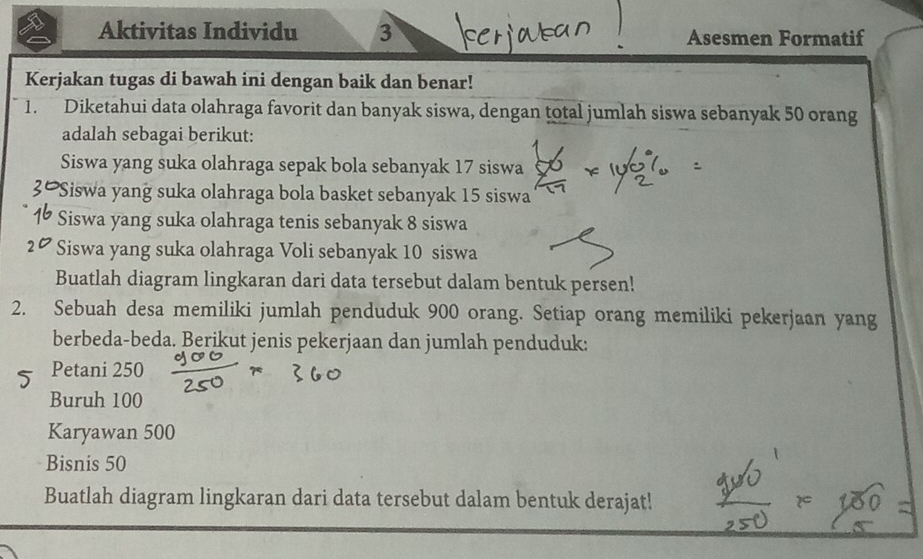 Aktivitas Individu 3 kerjakan! Asesmen Formatif
Kerjakan tugas di bawah ini dengan baik dan benar!
1. Diketahui data olahraga favorit dan banyak siswa, dengan total jumlah siswa sebanyak 50 orang
adalah sebagai berikut:
Siswa yang suka olahraga sepak bola sebanyak 17 siswa
30 Siswa yang suka olahraga bola basket sebanyak 15 siswa
16 Siswa yang suka olahraga tenis sebanyak 8 siswa
20 Siswa yang suka olahraga Voli sebanyak 10 siswa
Buatlah diagram lingkaran dari data tersebut dalam bentuk persen!
2. Sebuah desa memiliki jumlah penduduk 900 orang. Setiap orang memiliki pekerjaan yang
berbeda-beda. Berikut jenis pekerjaan dan jumlah penduduk:
5 Petani 250 900/250 × 360
Buruh 100
Karyawan 500
Bisnis 50
Buatlah diagram lingkaran dari data tersebut dalam bentuk derajat!